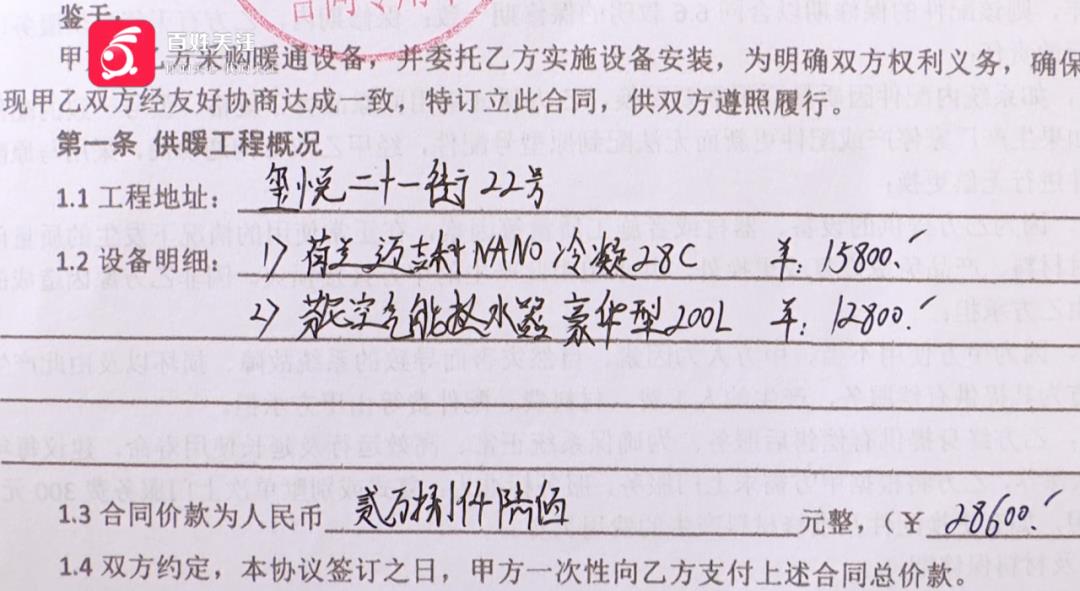 鉴于：
百姓关注
甲方 乙方采购暖通设备，并委托乙方实施设备安装，为明确双方权利义务，确保
现甲乙双方经友好协商达成一致，特订立此合同，供双方遵照履行。
第一条 供暖工程概况
1.1 工程地址： 玺悦二十一街22号
1.2 设备明细： 1) 荷兰 NANO 冷凝28C 羊：15800.
2) 空气能热水器豪华型200L 羊：12800.
1.3 合同价款为人民币 贰万捌仟陆佰 元整，小写￥ 28600
1.4 双方约定，本协议签订之日，甲方一次性向乙方支付上述合同总价款。